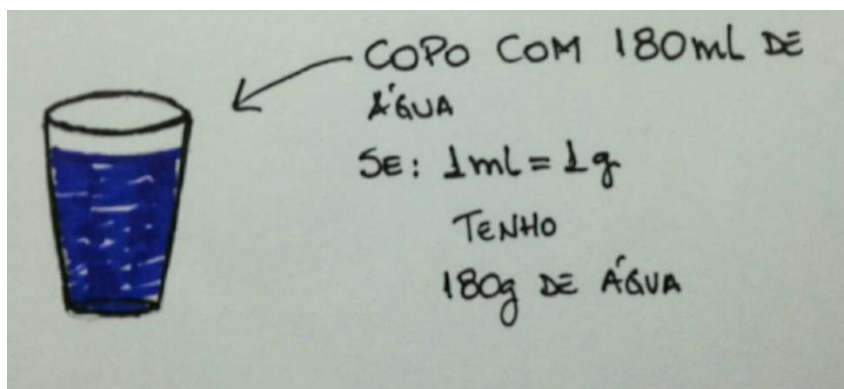 COPO COM 180ml DE
ÁGUA
SE: 1ml = 1g
TENHO
180g DE ÁGUA